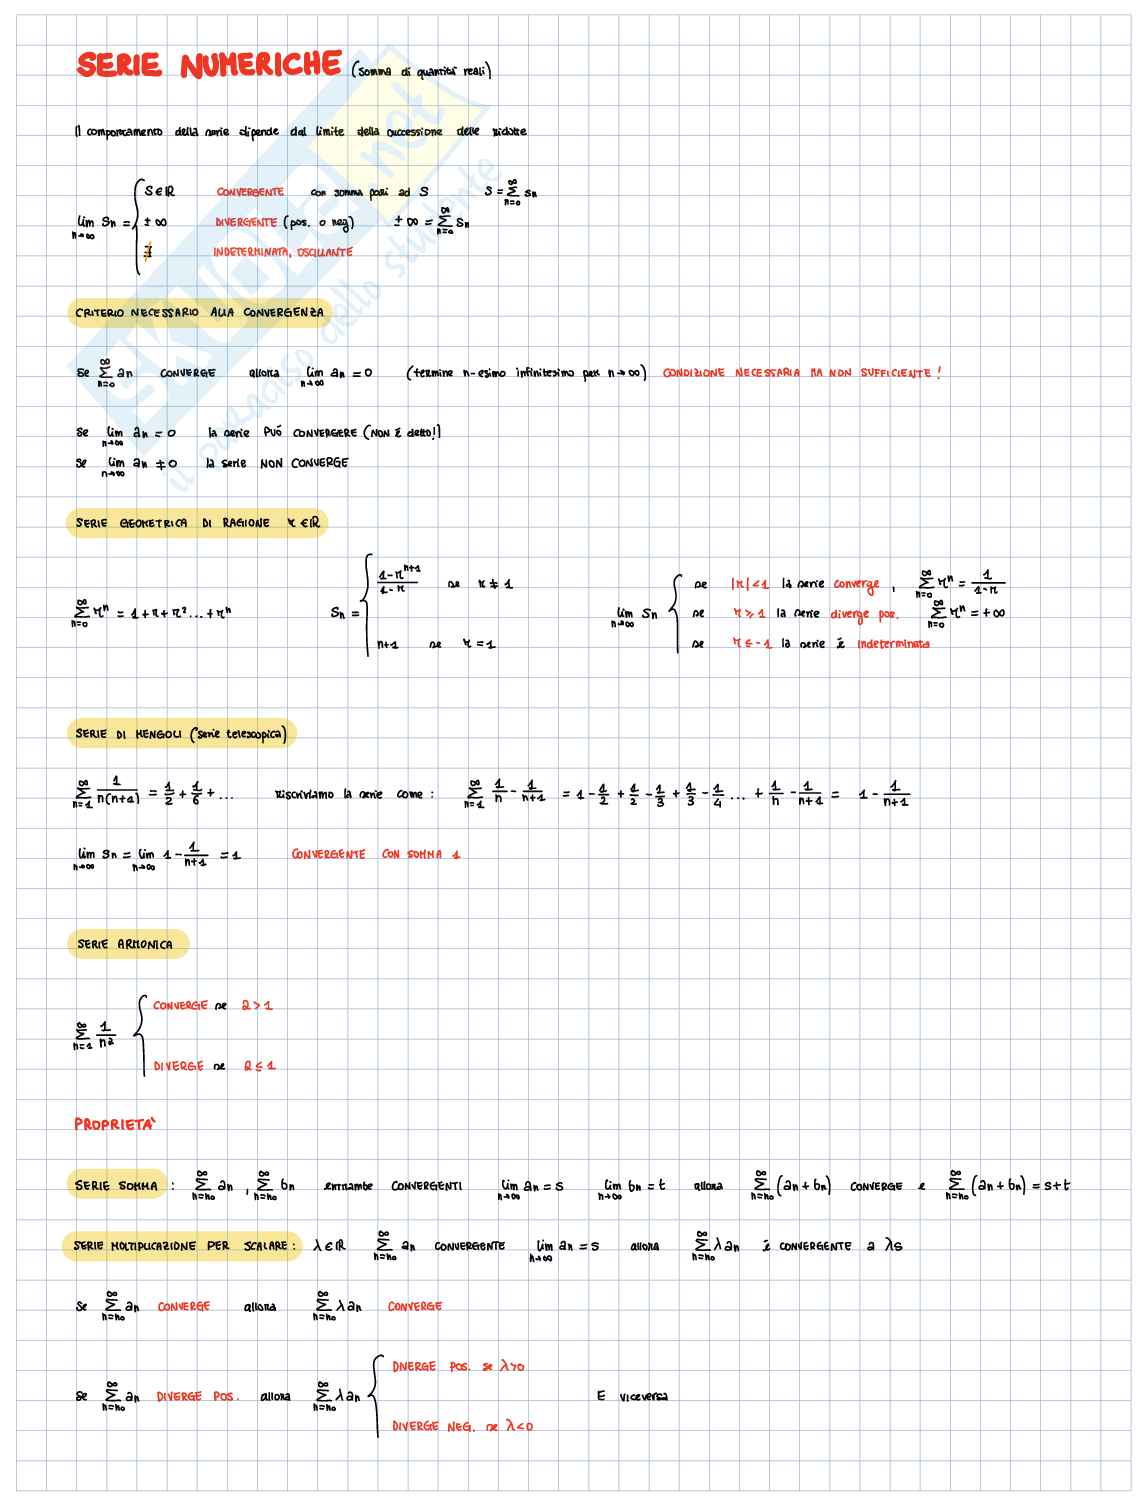 SERIE NUMERICHE (somma di quantità reali)
Il comportamento della serie dipende dal limite della successione delle ridotte
lim n→∞ Sn = { S ∈ ℝ CONVERGENTE con somma pari ad S S = ∑_{n=0}^{∞} sn
± ∞ DIVERGENTE (pos. o neg) ± ∞ = ∑_{n=0}^{∞} Sn
∄ INDETERMINATA, OSCILLANTE
CRITERIO NECESSARIO ALLA CONVERGENZA
Se ∑_{n=0}^{∞} an CONVERGE allora lim n→∞ an = 0 (termine n-esimo infinitesimo per n→∞) CONDIZIONE NECESSARIA MA NON SUFFICIENTE!
Se lim n→∞ an = 0 la serie PUÓ CONVERGERE (NON È detto!)
Se lim n→∞ an ≠ 0 la serie NON CONVERGE
SERIE GEOMETRICA DI RAGIONE r ∈ ℝ
∑_{n=0}^{∞} r^n = 1 + r + r² ... + r^n Sn = { (1 - r^{n+1})/(1 - r) se r ≠ 1
n+1 se r = 1
lim n→∞ Sn { se |r| < 1 la serie converge, ∑_{n=0}^{∞} r^n = 1/(1-r)
se r ⩾ 1 la serie diverge pos. ∑_{n=0}^{∞} r^n = +∞
se r ≤ -1 la serie è indeterminata
SERIE DI MENGOLI (serie telescopica)
∑_{n=1}^{∞} 1/(n(n+1)) = 1/2 + 1/6 + ... riscriviamo la serie come: ∑_{n=1}^{∞} 1/n - 1/(n+1) = 1 - 1/2 + 1/2 - 1/3 + 1/3 - 1/4 ... + 1/n - 1/(n+1) = 1 - 1/(n+1)
lim n→∞ Sn = lim n→∞ 1 - 1/(n+1) = 1 CONVERGENTE CON SOMMA 1
SERIE ARMONICA
∑_{n=1}^{∞} 1/n^a { CONVERGE se a > 1
DIVERGE se a ≤ 1
PROPRIETA'
SERIE SOMMA : ∑_{n=n0}^{∞} an , ∑_{n=n0}^{∞} bn entrambe CONVERGENTI lim n→∞ an = s lim n→∞ bn = t allora ∑_{n=n0}^{∞} (an + bn) CONVERGE e ∑_{n=n0}^{∞} (an + bn) = s+t
SERIE MOLTIPLICAZIONE PER SCALARE: λ ∈ ℝ ∑_{n=n0}^{∞} an CONVERGENTE lim n→∞ an = s allora ∑_{n=n0}^{∞} λ an è CONVERGENTE a λs
Se ∑_{n=n0}^{∞} an CONVERGE allora ∑_{n=n0}^{∞} λ an CONVERGE
Se ∑_{n=n0}^{∞} an DIVERGE POS. allora ∑_{n=n0}^{∞} λ an { DIVERGE POS. se λ>0
DIVERGE NEG. se λ<0
E viceversa
SKUOLA.not
il paradiso dello studente